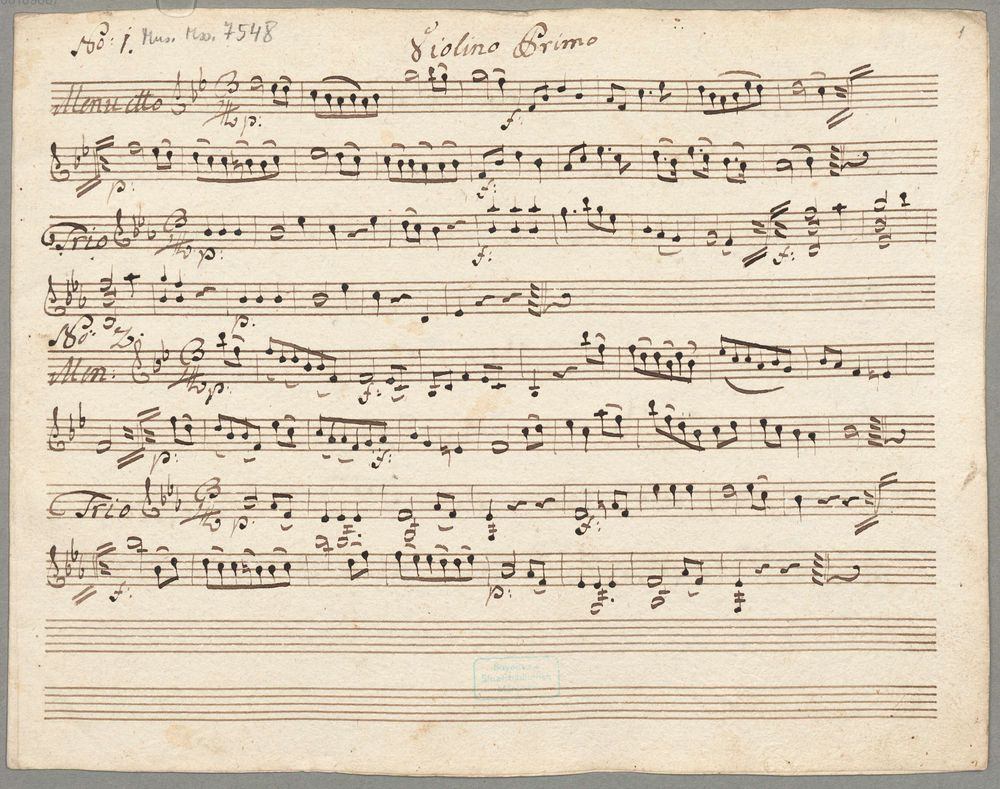 No: 1. Mus. Mss. 7548 Violino Primo 1
Menuetto 3/4 p: f:
p: f:
Trio 3/4 p: f: f:
p:
No: 2:
Men: 3/4 p: f:
p: f:
Trio 3/4 p: f:
f: p:
Bayerische
Staatsbibliothek
München